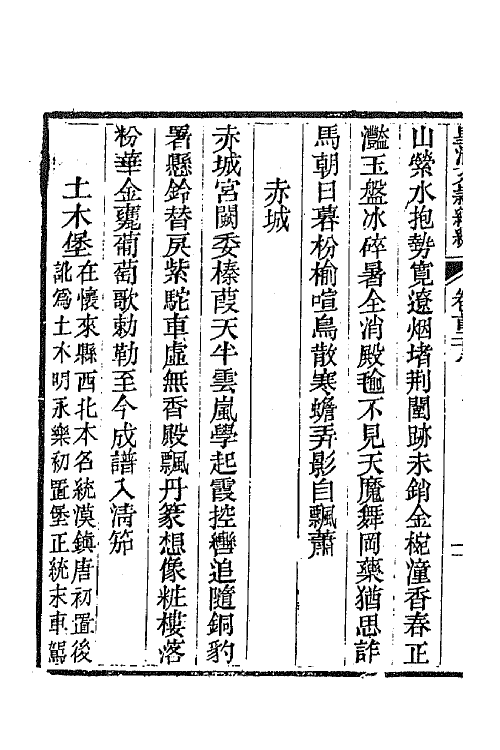 山縈水抱勢寬遼烟堵荆闉跡未銷金椀潼香春正
灩玉盤冰碎暑全消殿毺不見天魔舞岡藥猶思詐
馬朝日暮枌榆喧鳥散寒蟾弄影自飄蕭
赤城
赤城宮闕委榛葭天半雲嵐學起霞控轡追隨銅豹
署懸鈴替戾紫駝車虛無香殿飄丹篆想像粧樓落
粉華金甕葡萄歌勅勒至今成譜入淸笳
土木堡在懷來縣西北本名統漠鎮唐初置後
訛爲土木明永樂初置堡正統末車駕